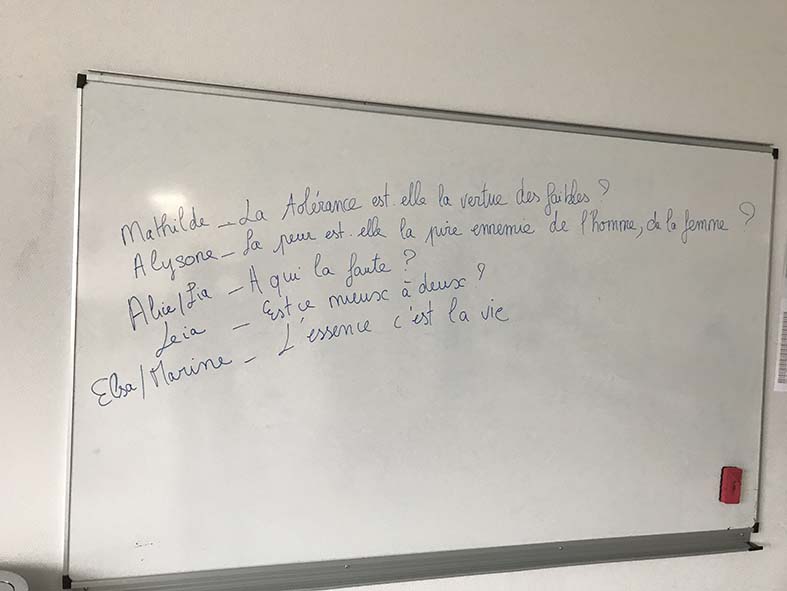 Mathilde - La tolérance est-elle la vertue des faibles ?
Alysone - La peur est-elle la pire ennemie de l'homme, de la femme ?
Alice/Lia - A qui la faute ?
Leia - Est ce mieux à deux ?
Elsa/Marine - L'essence c'est la vie